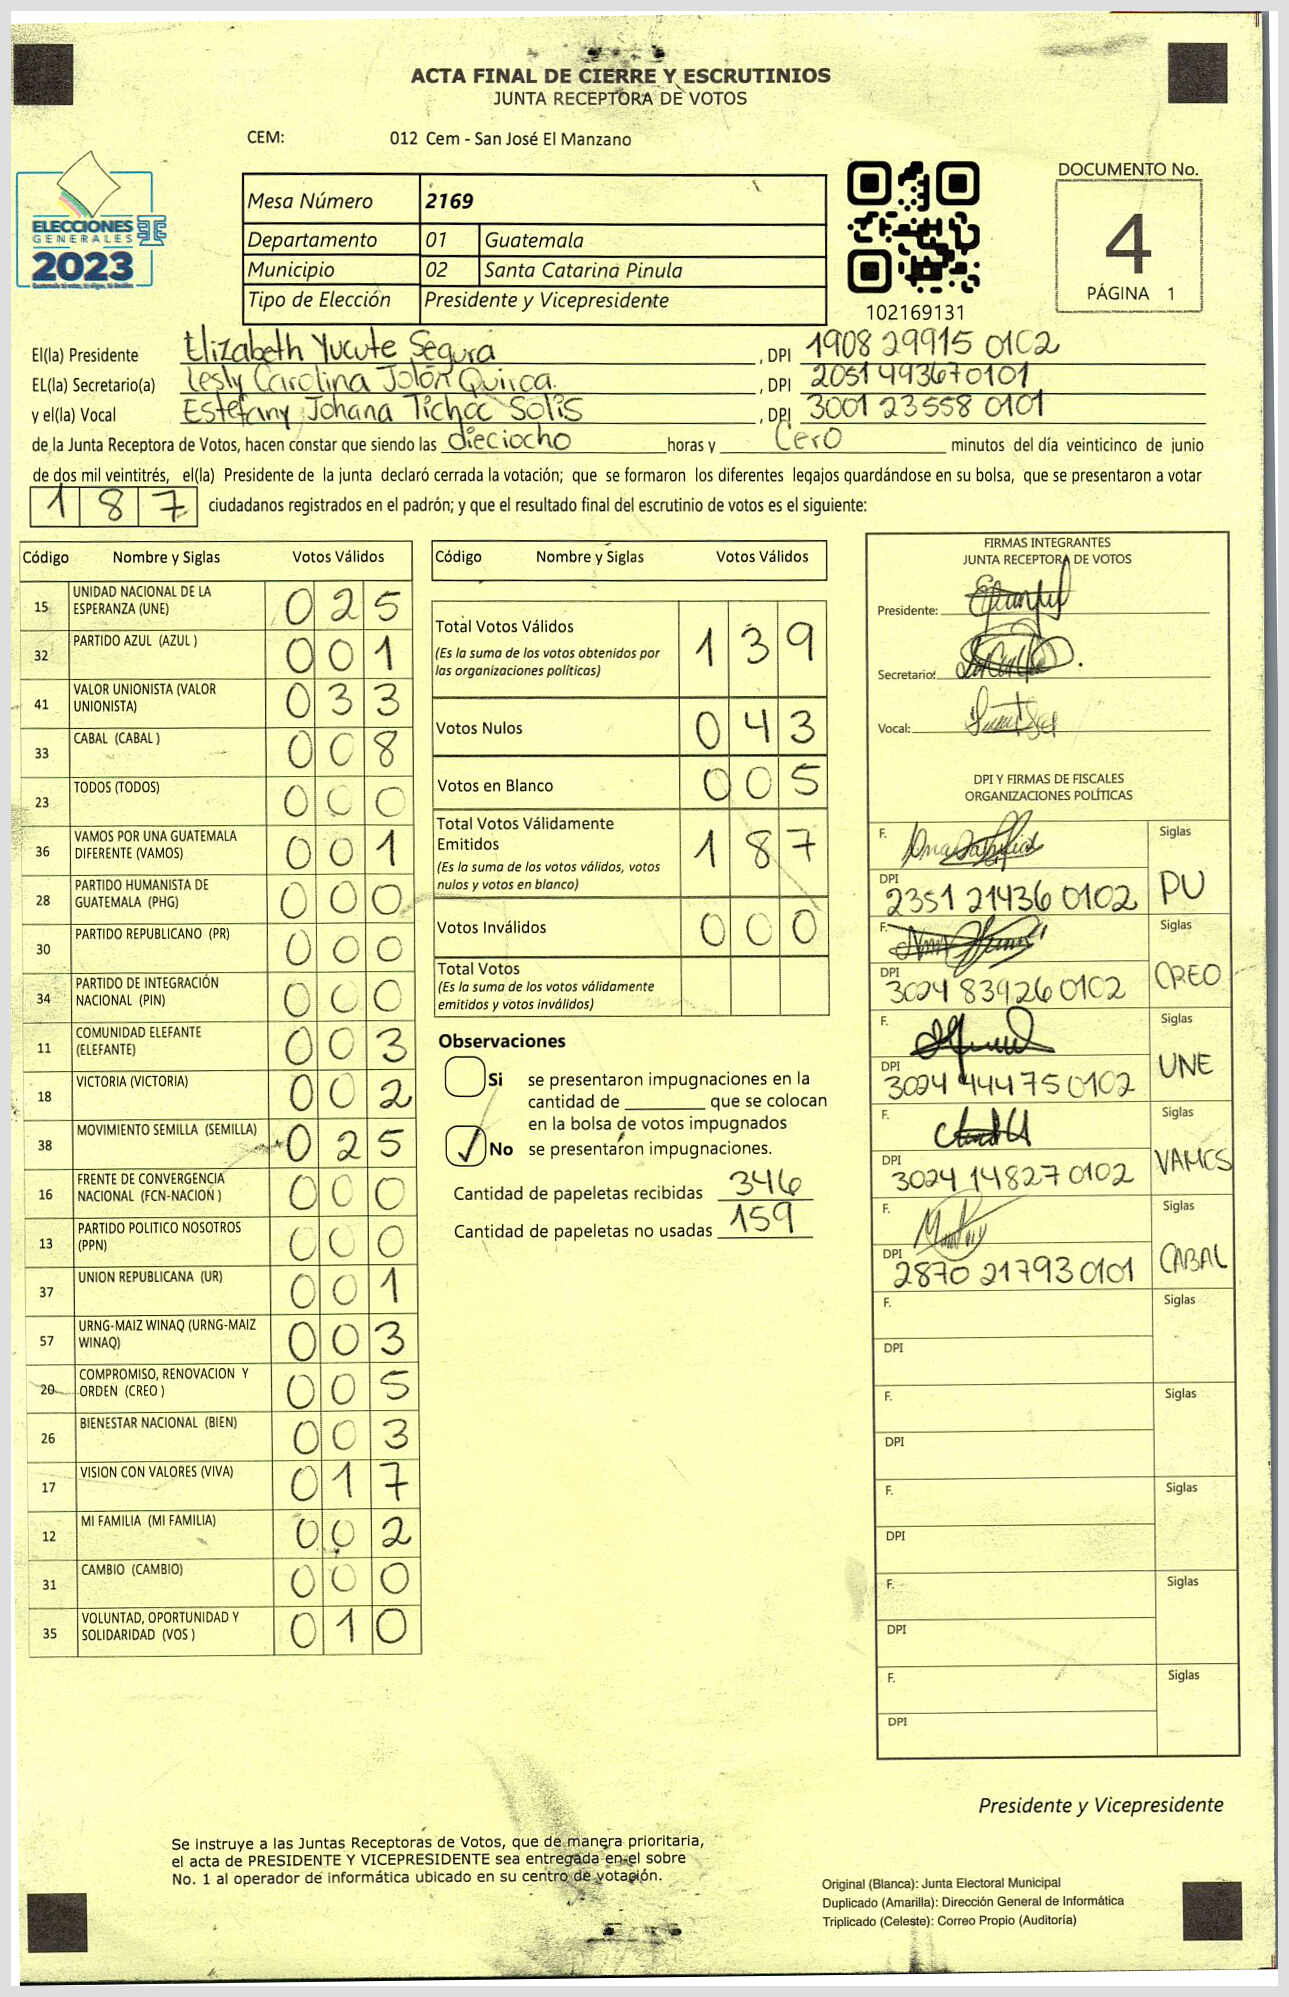 ACTA FINAL DE CIERRE Y ESCRUTINIOS
JUNTA RECEPTORA DE VOTOS
CEM: 012 Cem - San José El Manzano
ELECCIONES
GENERALES
2023
Mesa Número 2169
Departamento 01 Guatemala
Municipio 02 Santa Catarina Pinula
Tipo de Elección Presidente y Vicepresidente
102169131
DOCUMENTO No.
4
PÁGINA 1
El(la) Presidente Elizabeth Yucute Segura , DPI 1908 29915 0102
EL(la) Secretario(a) Lesly Carolina Jolón Quiroa. , DPI 2051 49367 0101
y el(la) Vocal Estefany Johana Tichoc Solis , DPI 3001 23558 0101
de la Junta Receptora de Votos, hacen constar que siendo las dieciocho horas y Cero minutos del día veinticinco de junio
de dos mil veintitrés, el(la) Presidente de la junta declaró cerrada la votación; que se formaron los diferentes legajos guardándose en su bolsa, que se presentaron a votar
187 ciudadanos registrados en el padrón; y que el resultado final del escrutinio de votos es el siguiente:
Código Nombre y Siglas Votos Válidos
15 UNIDAD NACIONAL DE LA ESPERANZA (UNE) 025
32 PARTIDO AZUL (AZUL ) 001
41 VALOR UNIONISTA (VALOR UNIONISTA) 033
33 CABAL (CABAL ) 008
23 TODOS (TODOS) 000
36 VAMOS POR UNA GUATEMALA DIFERENTE (VAMOS) 001
28 PARTIDO HUMANISTA DE GUATEMALA (PHG) 000
30 PARTIDO REPUBLICANO (PR) 000
34 PARTIDO DE INTEGRACIÓN NACIONAL (PIN) 000
11 COMUNIDAD ELEFANTE (ELEFANTE) 003
18 VICTORIA (VICTORIA) 002
38 MOVIMIENTO SEMILLA (SEMILLA) 025
16 FRENTE DE CONVERGENCIA NACIONAL (FCN-NACION ) 000
13 PARTIDO POLITICO NOSOTROS (PPN) 000
37 UNION REPUBLICANA (UR) 001
57 URNG-MAIZ WINAQ (URNG-MAIZ WINAQ) 003
20 COMPROMISO, RENOVACION Y ORDEN (CREO ) 005
26 BIENESTAR NACIONAL (BIEN) 003
17 VISION CON VALORES (VIVA) 017
12 MI FAMILIA (MI FAMILIA) 002
31 CAMBIO (CAMBIO) 000
35 VOLUNTAD, OPORTUNIDAD Y SOLIDARIDAD (VOS ) 010
Código Nombre y Siglas Votos Válidos
Total Votos Válidos 139
(Es la suma de los votos obtenidos por
las organizaciones políticas)
Votos Nulos 043
Votos en Blanco 005
Total Votos Válidamente
Emitidos 187
(Es la suma de los votos válidos, votos
nulos y votos en blanco)
Votos Inválidos 000
Total Votos
(Es la suma de los votos válidamente
emitidos y votos inválidos)
Observaciones
Si se presentaron impugnaciones en la
cantidad de ________ que se colocan
en la bolsa de votos impugnados
✓ No se presentaron impugnaciones.
Cantidad de papeletas recibidas 346
Cantidad de papeletas no usadas 159
FIRMAS INTEGRANTES
JUNTA RECEPTORA DE VOTOS
Presidente:
Secretario:
Vocal:
DPI Y FIRMAS DE FISCALES
ORGANIZACIONES POLÍTICAS
F. Siglas
DPI 2351 21436 0102 PU
F. Siglas
DPI 3024 83926 0102 CREO
F. Siglas
DPI 3024 44475 0102 UNE
F. Siglas
DPI 3024 14827 0102 VAMOS
F. Siglas
DPI 2870 21793 0101 CABAL
F. Siglas
DPI
F. Siglas
DPI
F. Siglas
DPI
F. Siglas
DPI
F. Siglas
DPI
Presidente y Vicepresidente
Se instruye a las Juntas Receptoras de Votos, que de manera prioritaria,
el acta de PRESIDENTE Y VICEPRESIDENTE sea entregada en el sobre
No. 1 al operador de informática ubicado en su centro de votación.
Original (Blanca): Junta Electoral Municipal
Duplicado (Amarilla): Dirección General de Informática
Triplicado (Celeste): Correo Propio (Auditoría)